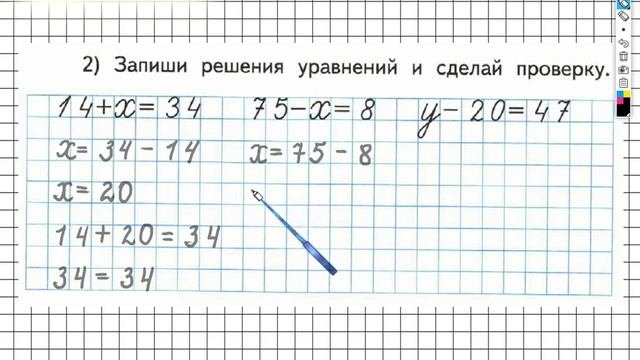 2) Запиши решения уравнений и сделай проверку.
14+x=34 75-x=8 y-20=47
x=34-14 x=75-8
x=20
14+20=34
34=34